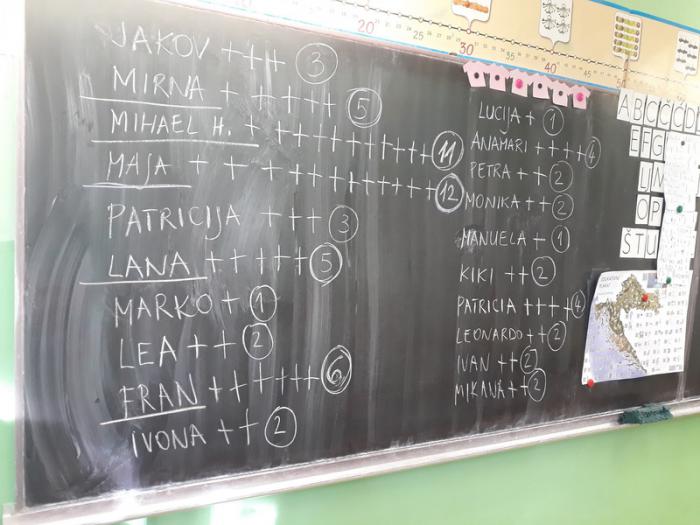 20 25 30 35 40 45
JAKOV +++ 3
MIRNA +++++ 5
MIHAEL H. +++++++++++ 11
MAJA ++++++++++++ 12
PATRICIJA +++ 3
LANA +++++ 5
MARKO + 1
LEA ++ 2
FRAN ++++++ 6
IVONA ++ 2
LUCIJA + 1
ANAMARI ++++ 4
PETRA ++ 2
MONIKA ++ 2
MANUELA + 1
KIKI ++ 2
PATRICIA ++++ 4
LEONARDO ++ 2
IVAN ++ 2
MIKANA ++ 2
A B C Č Ć D
E F G
O P
Š T U